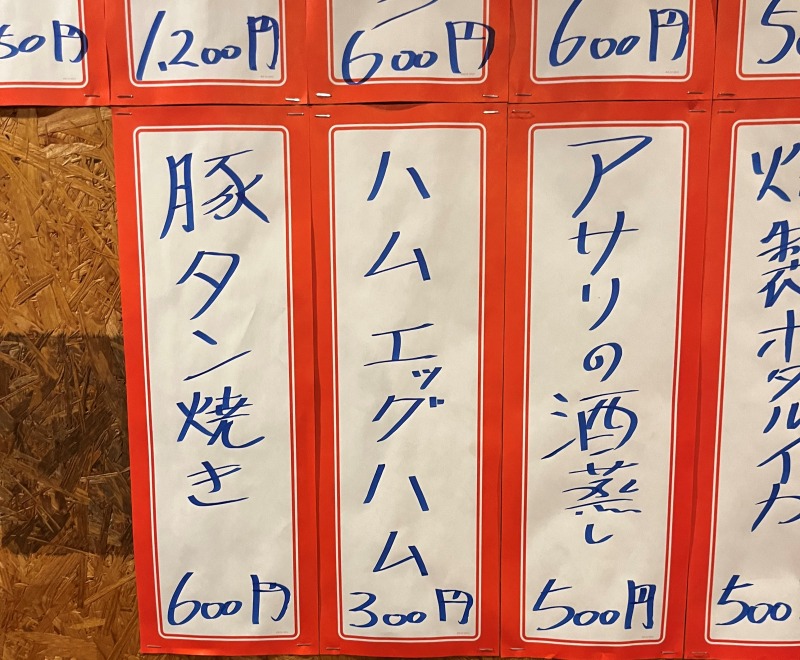 50円
1,200円
600円
600円
豚タン焼き
600円
ハムエッグハム
300円
アサリの酒蒸し
500円
製ホタルイカ
500